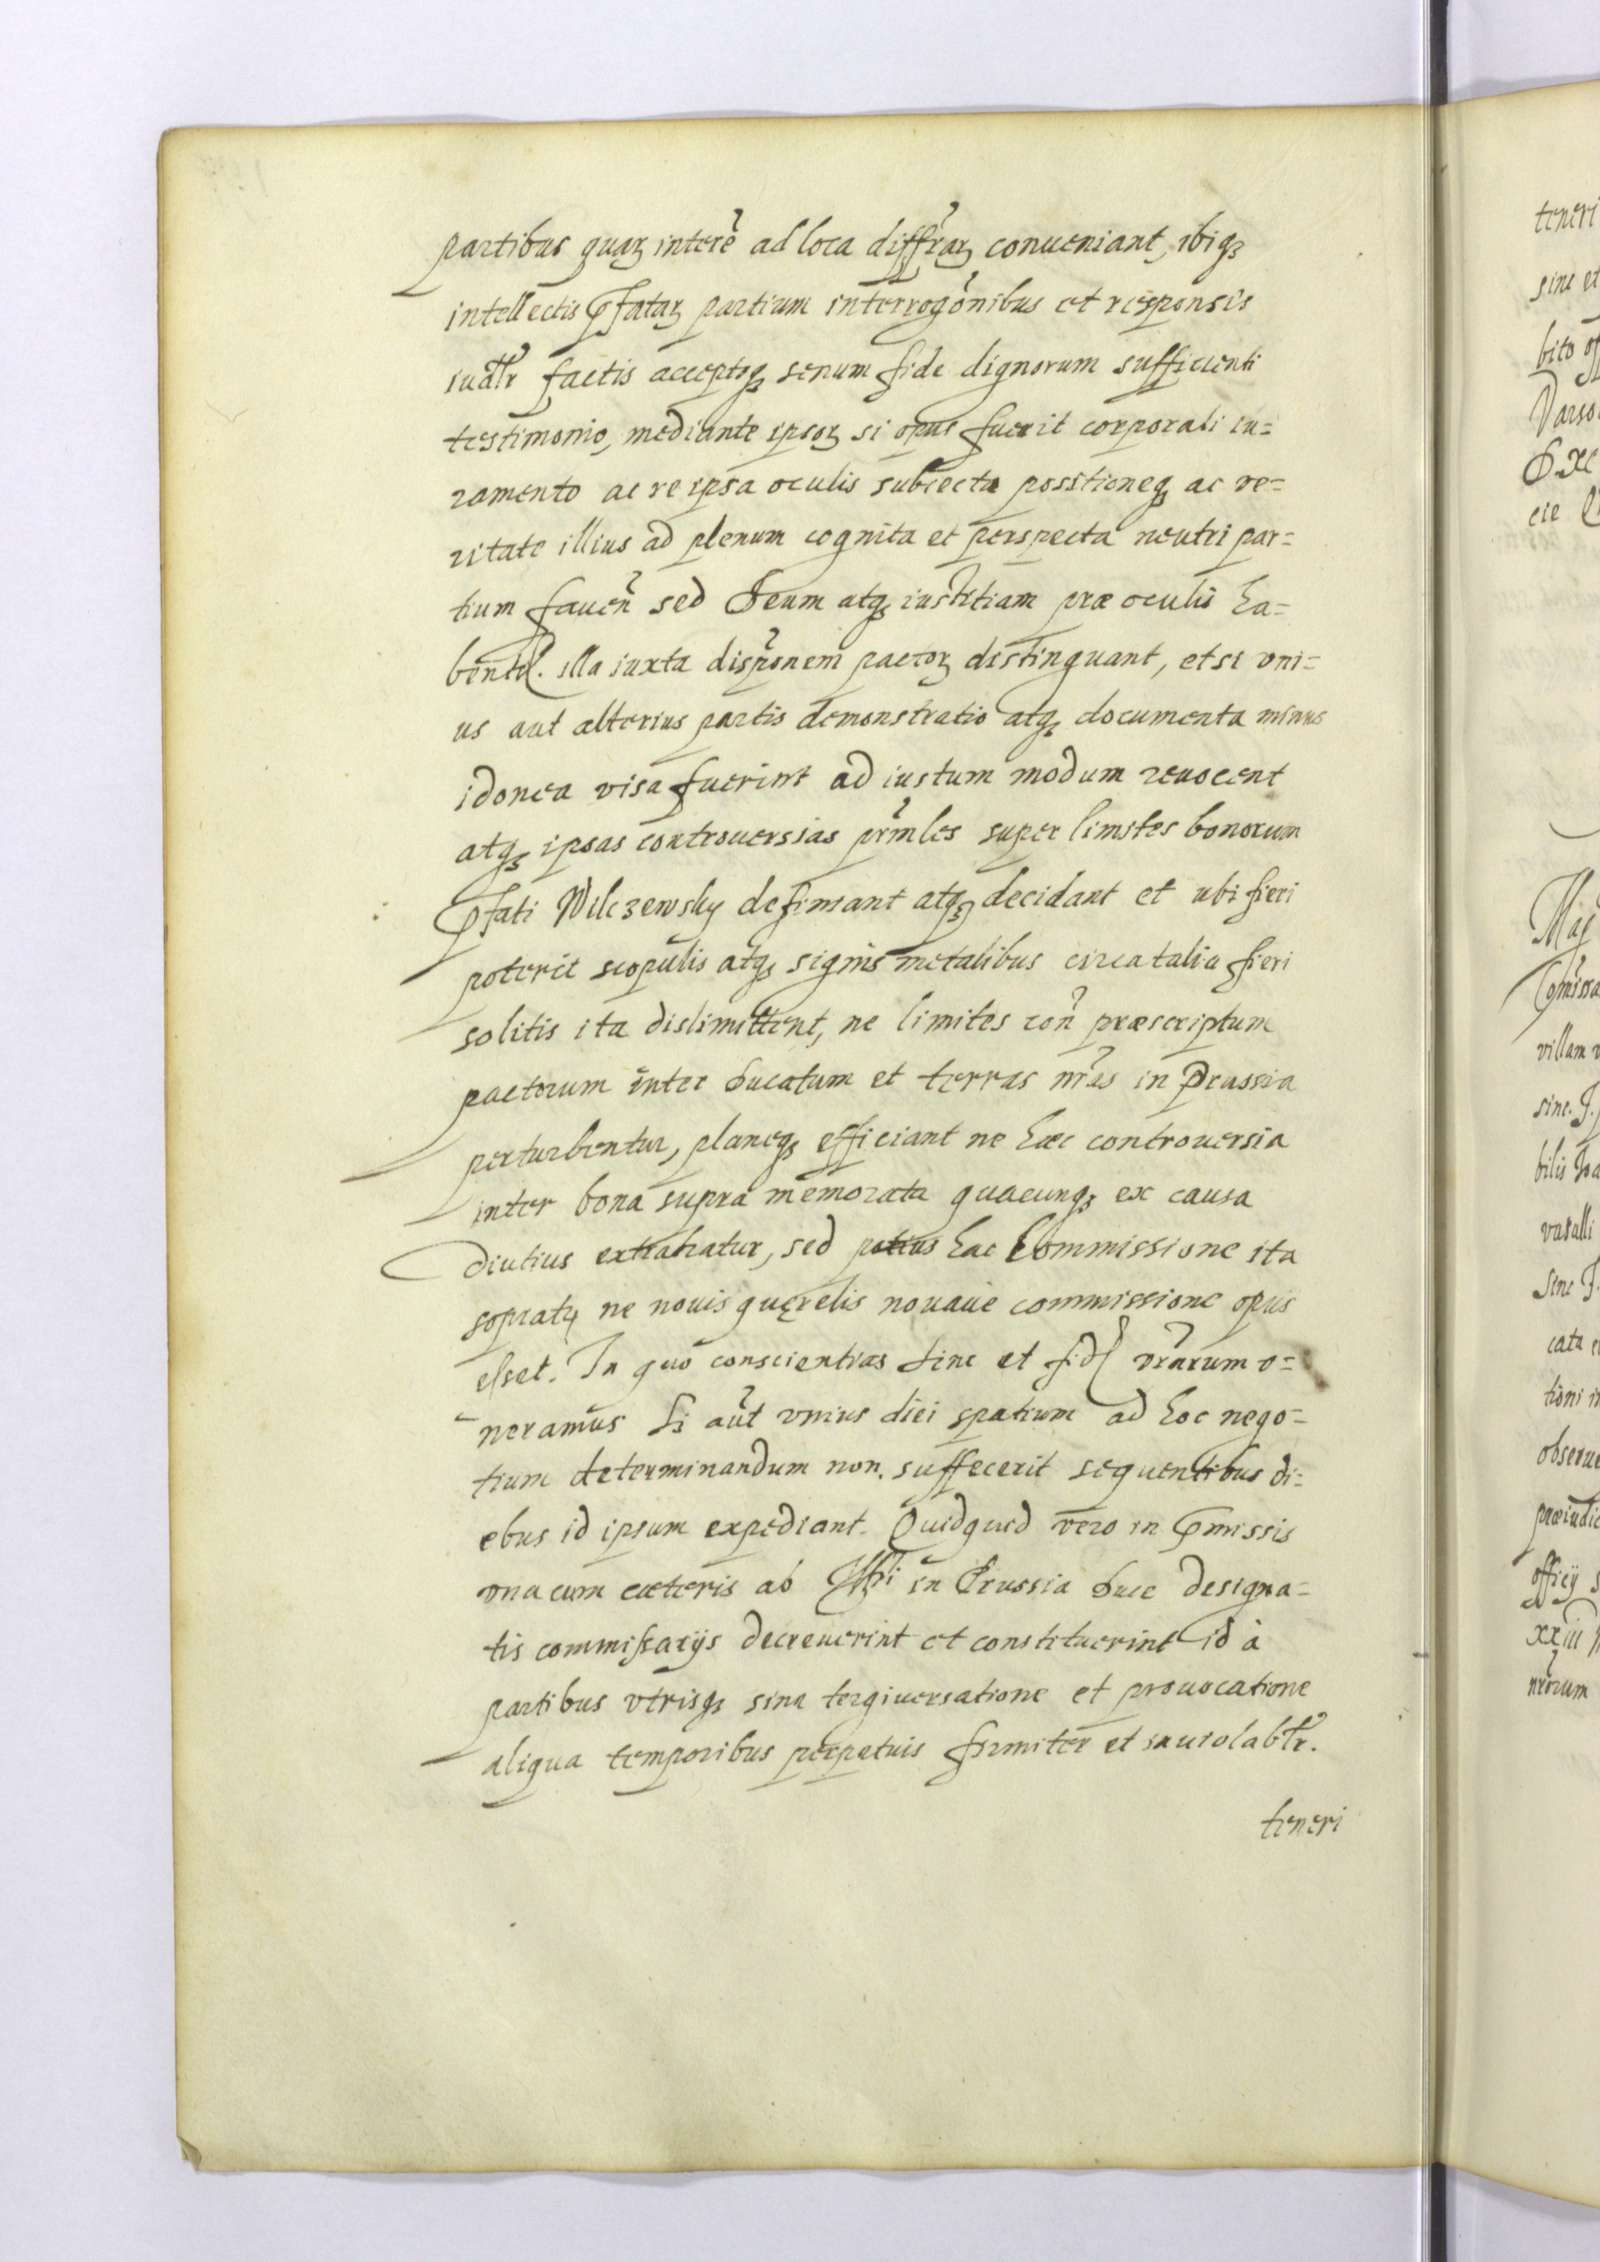 partibus quaꝝ interẽ ad loca diffrãꝝ conueniant, ibiqꝫ
intellectis p̱fataꝝ partium interrogõnibus et responsis
iudãlr factis acceptoqꝫ senum fide dignorum sufficienti
testimonio, mediante ipsoꝝ si opus fuerit corporali iu=
ramento ac re ipsa oculis subiecta possitioneqꝫ ac ve=
ritate illius ad plenum cognita et perspecta neutri par=
tium fauen̄ sed Deum atqꝫ iustitiam præ oculis ha=
bentes. illa iuxta dispõnem pactoꝝ distinguant, et si vni=
us aut alterius partis demonstratio atqꝫ documenta minus
idonea visa fuerint ad iustum modum reuocent
atqꝫ ipsas controuersias prm̃les super limites bonorum
p̱fati Wilczewsky definiant atqꝫ decidant et ubi fieri
poterit scopulis atqꝫ signis metalibus circa talia fieri
solitis ita dislimittent, ne limites con̄ præscriptum
pactorum inter ducatum et terras nr̃as in Prussia
perturbentur, planeqꝫ efficiant ne hæc controuersia
inter bona supra memorata quacunqꝫ ex causa
diutius extrahatur, sed potius hac Commissione ita
sopiatꝝ ne nouis quęrelis nouaue commissione opus
esset. In quo conscientias sinc et fid vrãrum o=
neramus Si aũt vnius diei spatium ad hoc nego=
tium determinandum non suffecerit sequentibus di=
ebus id ipsum expediant. Quidquid vero in p̱missis
vna cum cæteris ab Illri in Prussia duce designa=
tis commissarijs decreuerint et constituerint id à
partibus vtrisqꝫ sina tergiuersatione et prouocatione
aliqua temporibus perpetuis firmiter et inuiolabl̃r.
teneri
teneri
sine et
bito
Varso
cie
Maj
villam
sine.
bilis
vasalli
sine
cata
tioni
obserue
præiudic
officij
xxiii